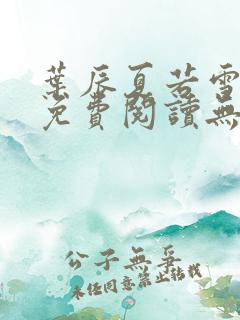 葉辰夏若雪
免費閱讀無
公子無爭
未經同意禁止轉載